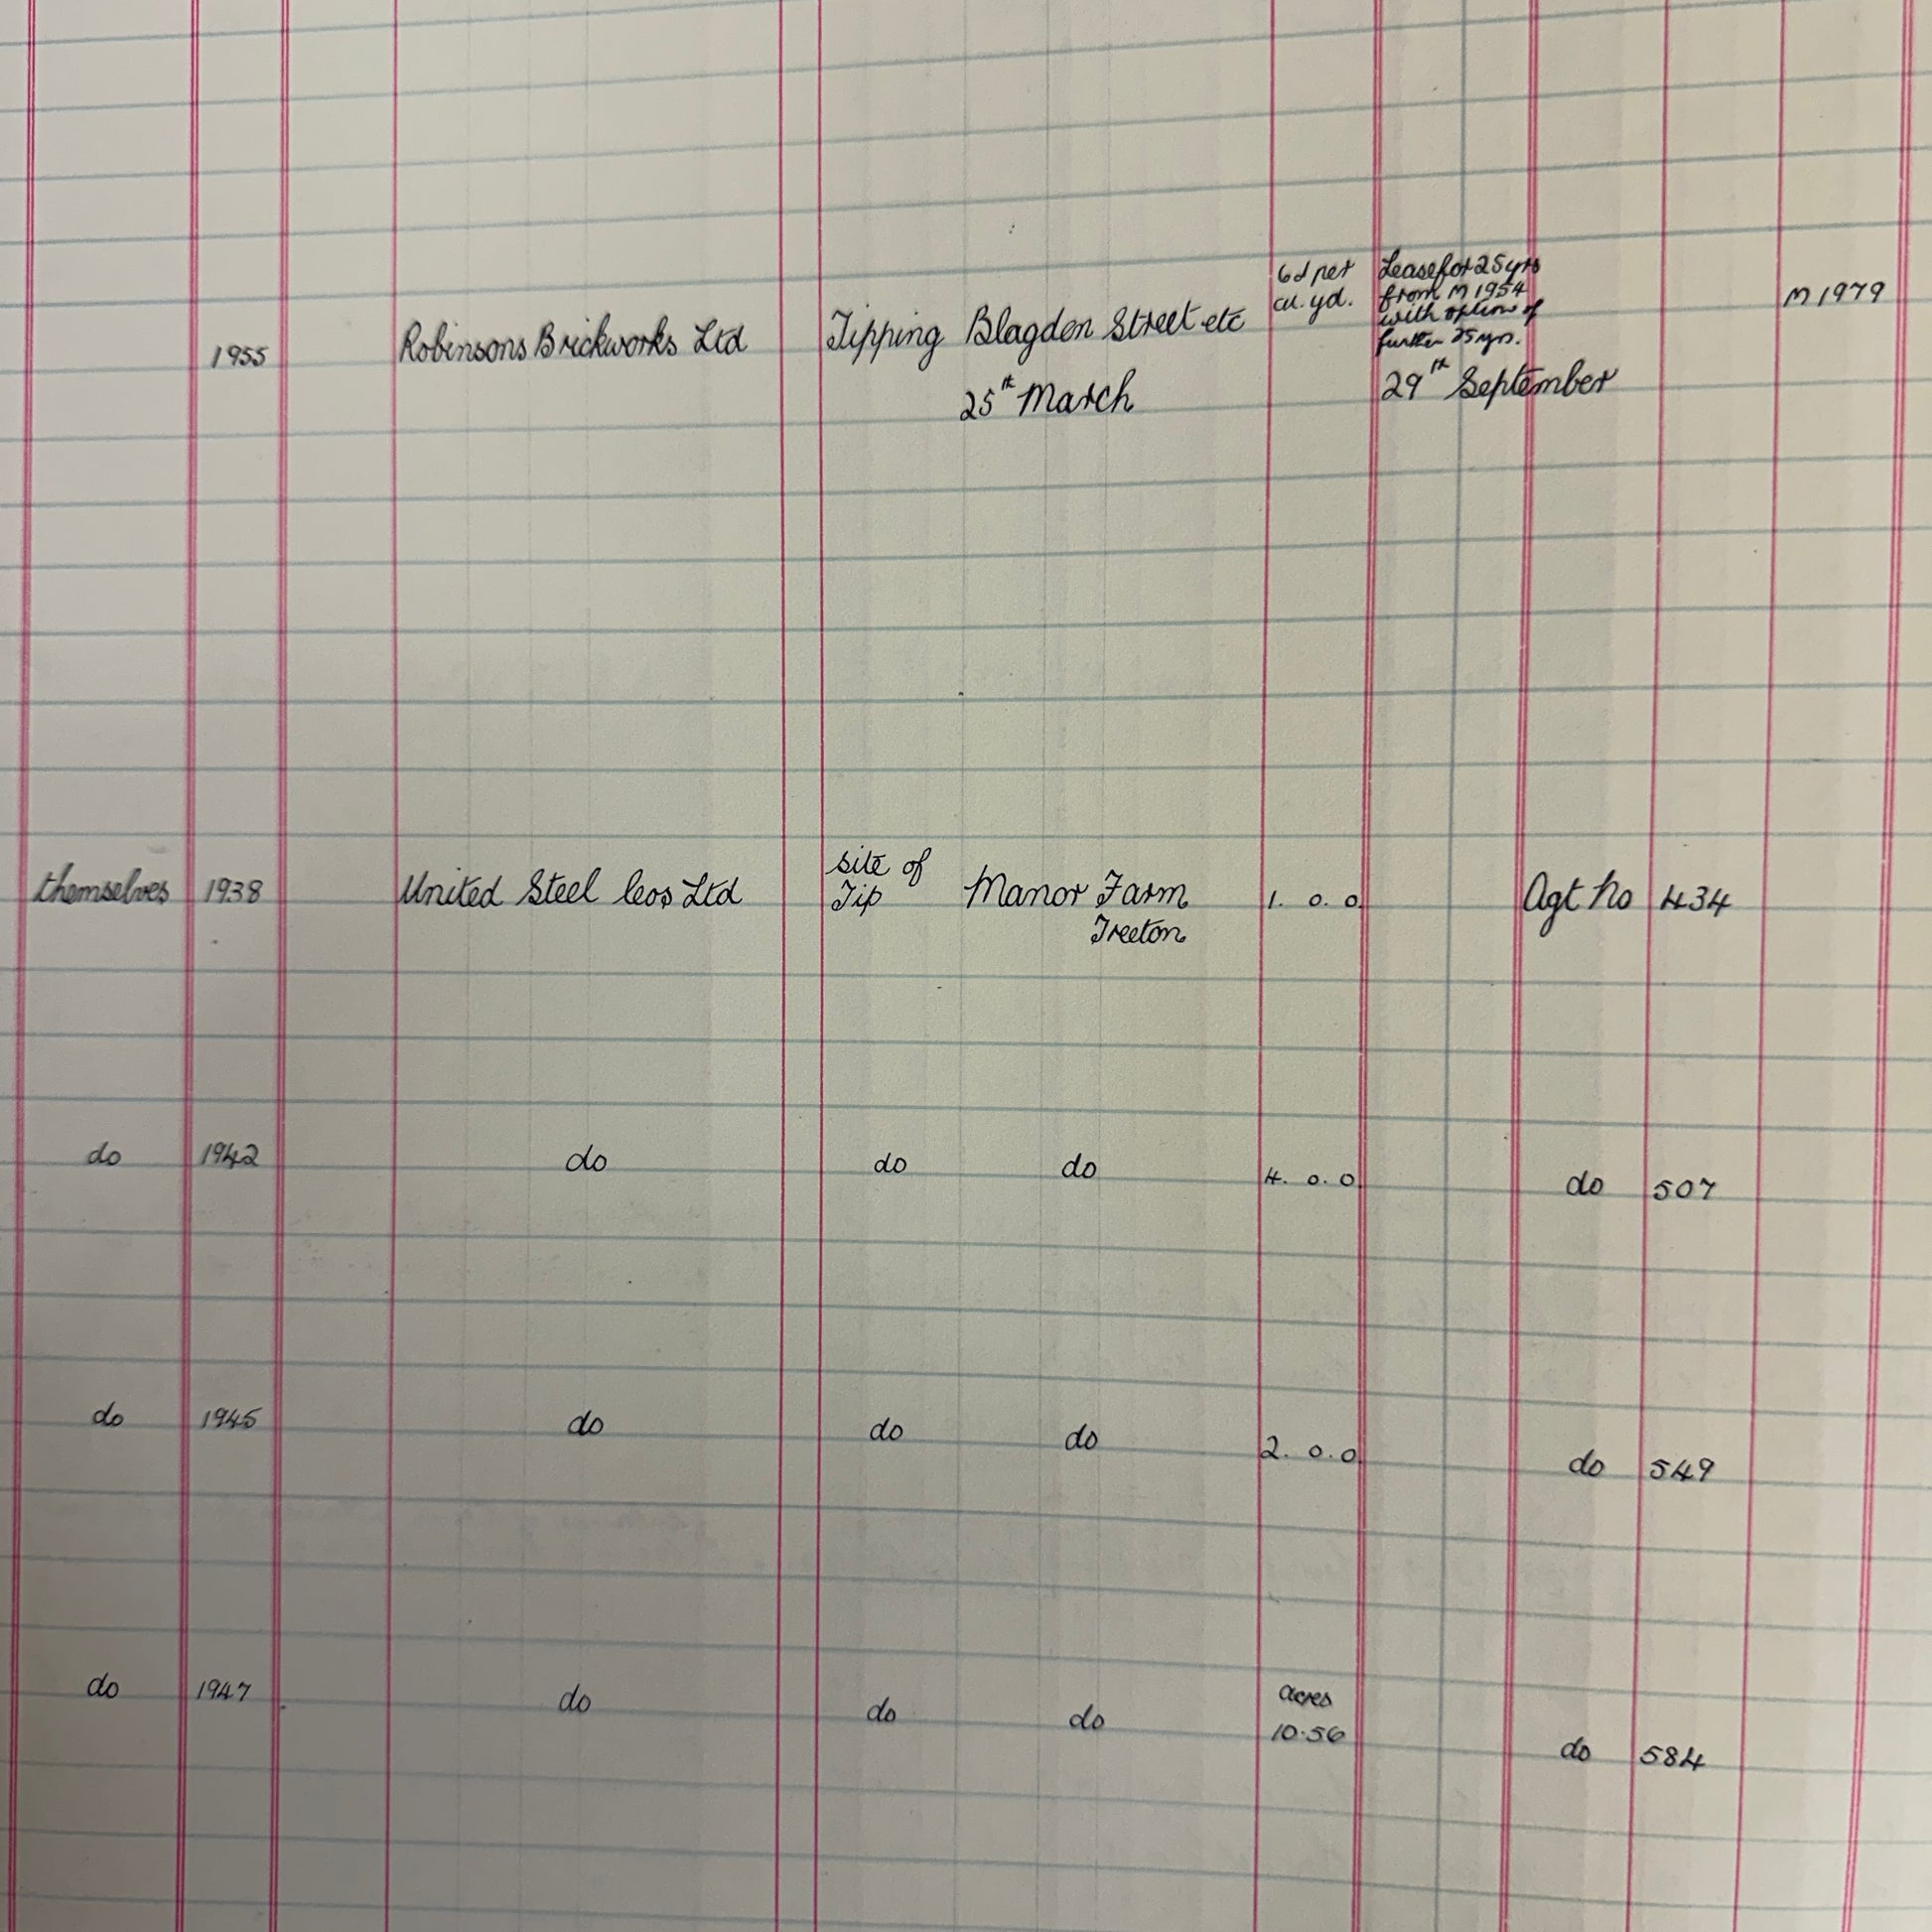 6d per
cu. yd.
Lease for 25 yrs
from M 1954
with option of
further 25 yrs.
M 1979
1955 Robinsons Brickworks Ltd Tipping Blagden Street etc
25th March 29th September
site of
themselves 1938 United Steel Cos Ltd Tip Manor Farm 1. 0. 0. Agt No 434
Treeton
do 1942 do do do 4. 0. 0. do 507
do 1945 do do do 2. 0. 0. do 549
acres
do 1947 do do do 10.56 do 584